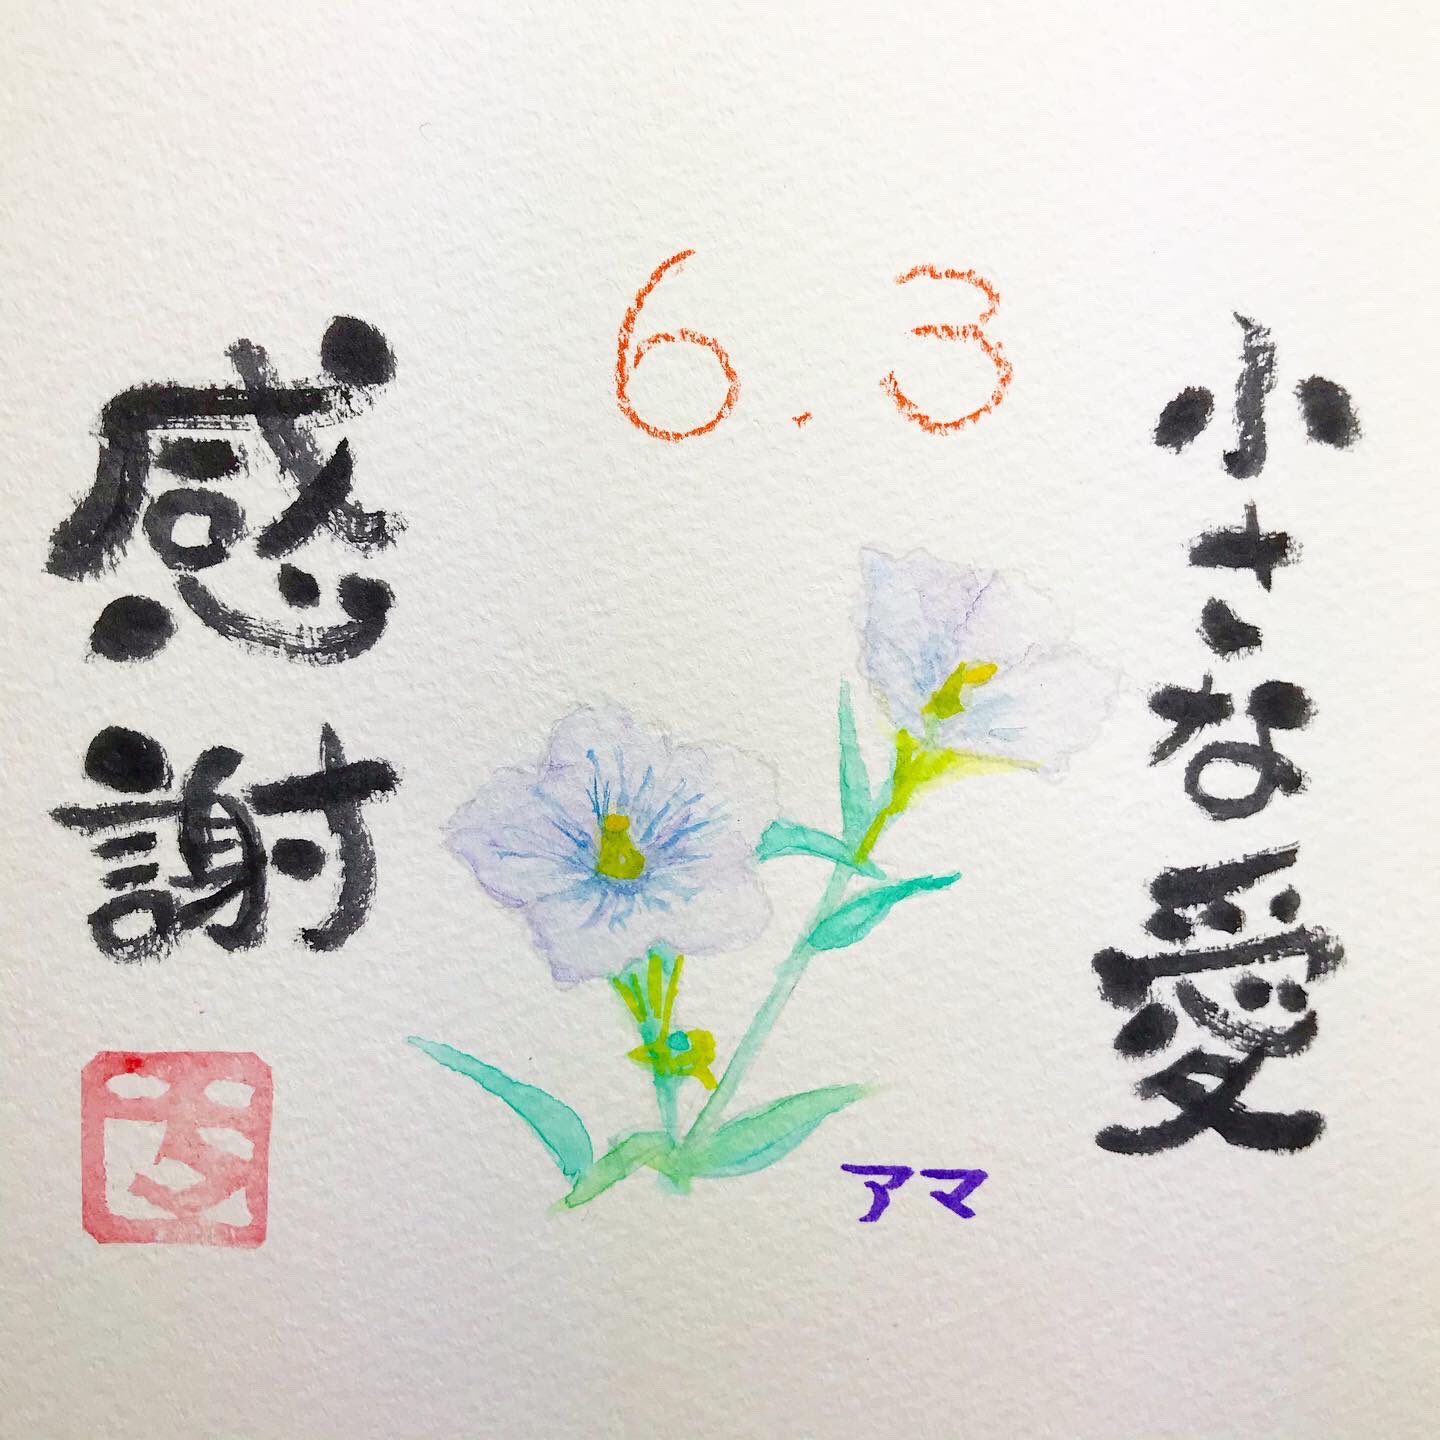 6.3
小さな愛
感謝
アマ